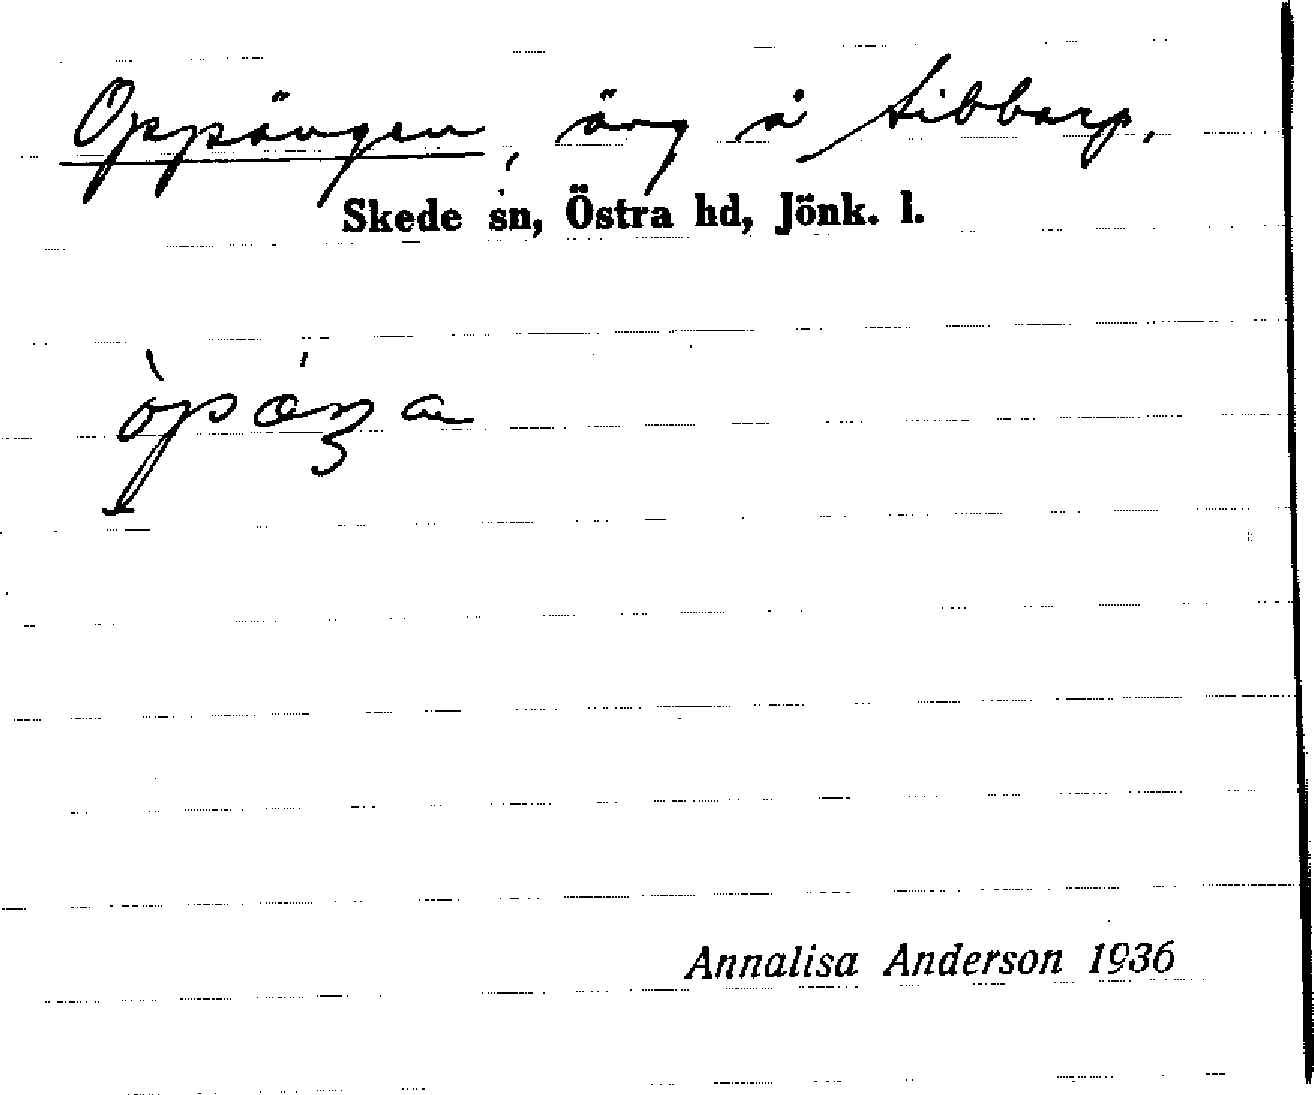 Oppängen, äng å Sibbarp,
Skede sn, Östra hd, Jönk. l.
Annalisa Anderson 1936